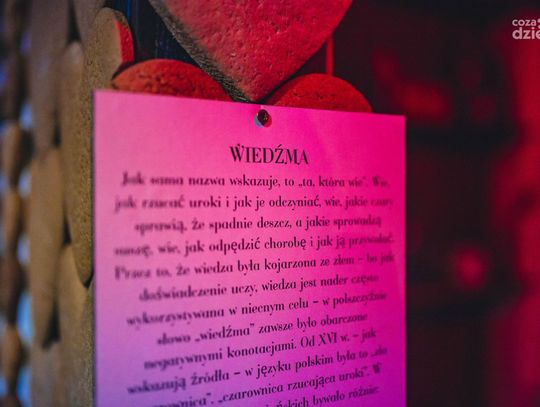 COZA
dzie
WIEDŹMA
Jak sama nazwa wskazuje, to „ta, która wie". Wie,
jak rzucać uroki i jak je odczyniać, wie, jakie czary
sprawią, że spadnie deszcz, a jakie sprowadzą
suszę, wie, jak odpędzić chorobę i jak ją przywołać.
Przez to, że wiedza była kojarzona ze złem – bo jak
doświadczenie uczy, wiedza jest nader często
wykorzystywana w niecnym celu – w polszczyźnie
słowo „wiedźma" zawsze było obarczone
negatywnymi konotacjami. Od XVI w. – jak
wskazują źródła – w języku polskim była to „zła
", „czarownica rzucająca uroki". W
bywało różnie: